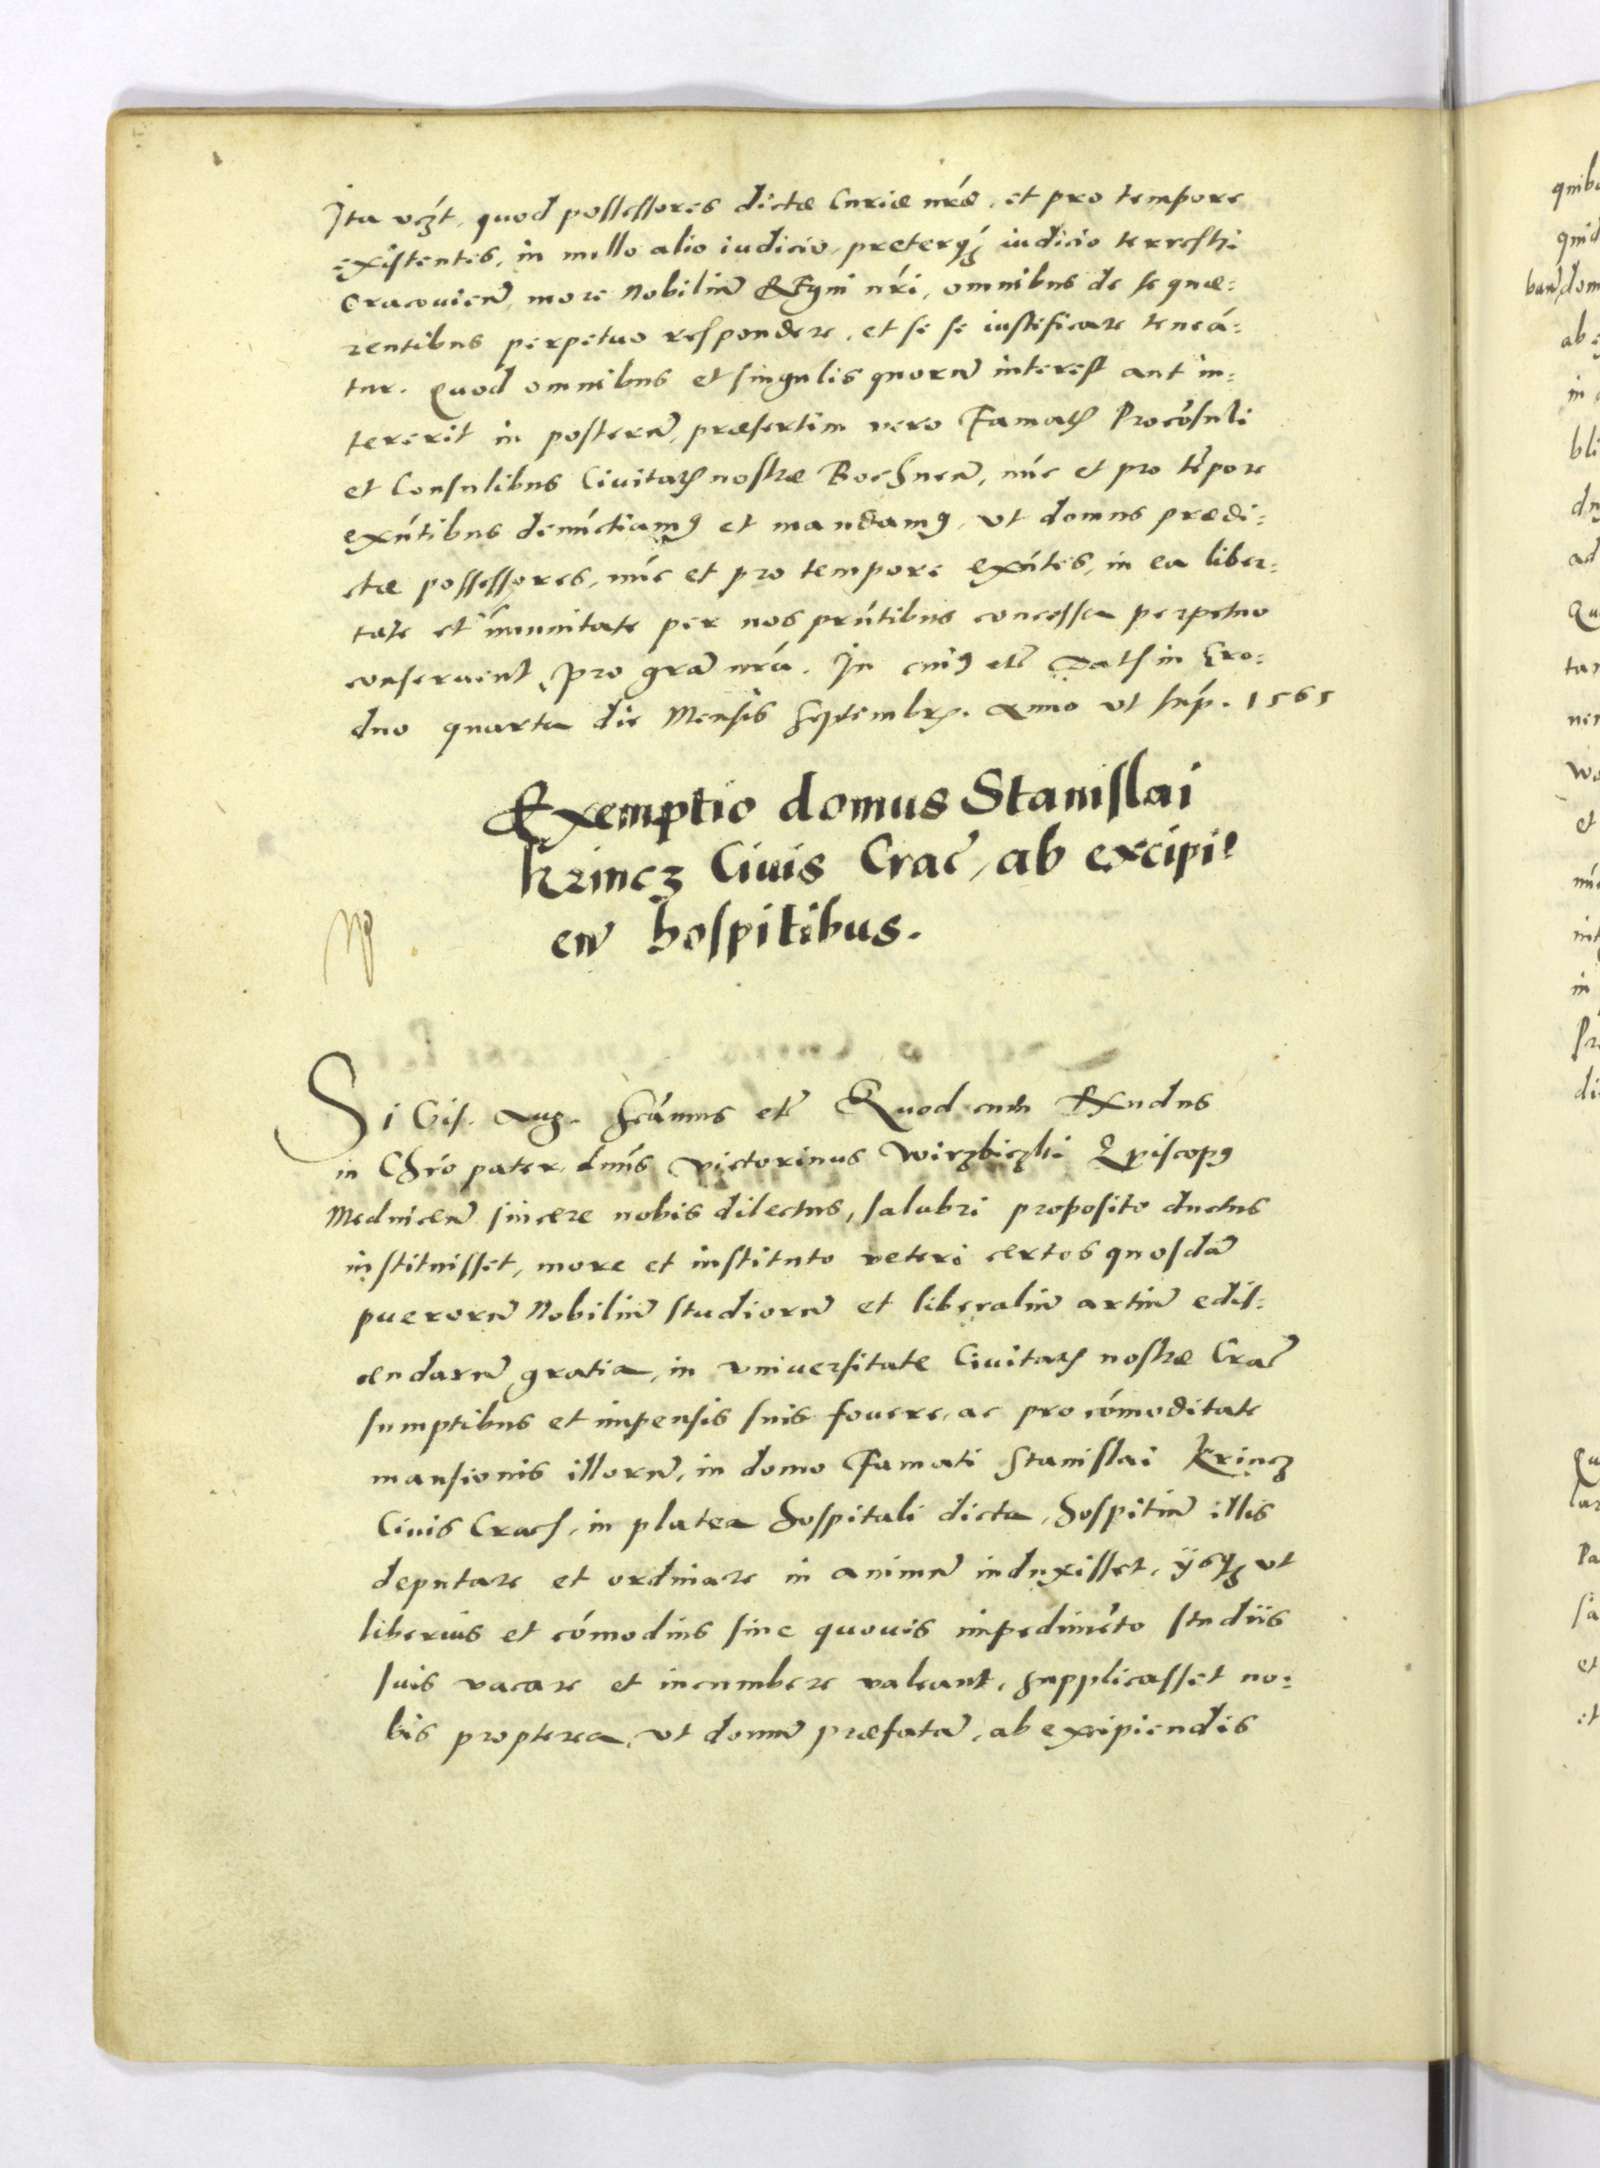 Ita vczt, quod possessores dictæ Curiæ nrǽ, et pro tempore
existentes, in nullo alio iudicio, preterqz iudicio terrestri
Cracovien̄, more Nobiliū Regni nr̄i, omnibus de se quæ=
rentibus perpetuo respondere, et se se iustificare teneā=
tur. Quod omnibus et singulis quorū interest aut in=
tererit in posterū, præsertim vero Famat. Procōsuli
et Consulibus Ciuitat. nostræ Bochnen̄, nūc et pro tēpore
exn̄tibus denūctiamꝰ et mandamꝰ, vt domus prædi=
ctæ possessores, nūc et pro tempore exn̄tes, in ea liber=
tate et īmunitate per nos prn̄tibus concessa perpetuo
conseruent, pro gra̅ nr̄a. In cuiꝰ etc̄ Dat. in Gro=
dno quarta die Mensis Septembr. Anno vt sup̄. 1565
Exemptio domus Stanislai
Krincz Ciuis Crac̄, ab excipi=
en̄ hospitibus.
Sigis. Aug. Sc̄amus etc̄ Quod cum Rx̄ndus
in Chr̄o pater, dn̄us Victorinus Wirzbiczki Episcopꝰ
Mednicen̄ sincere nobis dilectus, salubri proposito ductus
instituisset, more et instituto veteri certos quosdā
puerorū Nobiliū studiorū et liberaliū artiū edis=
cendarū gratia, in vniuersitate Ciuitat. nostræ Crac̄
sumptibus et impensis suis fouere, ac pro cōmoditate
mansionis illorū, in domo Famati Stanislai Krincz
Ciuis Crac., in platea hospitali dicta, hospitiū illis
deputare et ordinare in animū induxisset, ijsqz vt
liberius et cōmodius sine quouis impedimēto studiis
suis vacare et incumbere valeant, supplicasset no=
bis propterea, vt domū præfatā, ab excipiendis